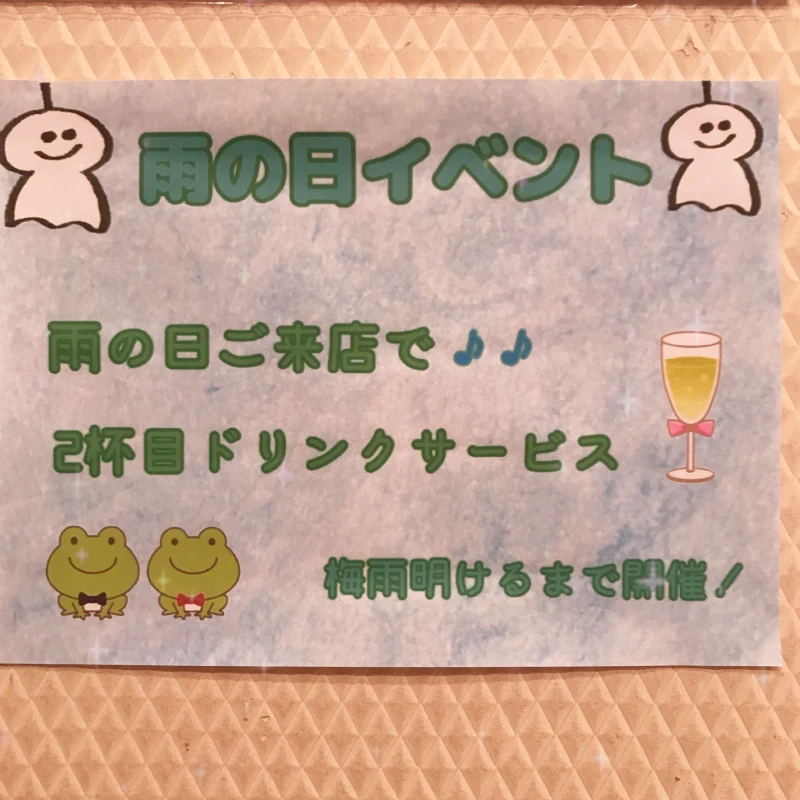 雨の日イベント
雨の日ご来店で♪♪
2杯目ドリンクサービス
梅雨明けるまで開催！